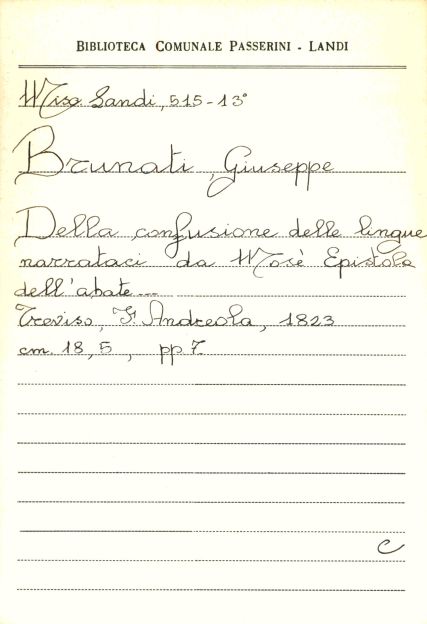 BIBLIOTECA COMUNALE PASSERINI - LANDI
Misc. Landi, 515-13°
Brunati, Giuseppe
Della confusione delle lingue
narrataci da Mosè Epistola
dell'abate...
Treviso, F. Andreola, 1823
cm. 18,5, pp 7
C